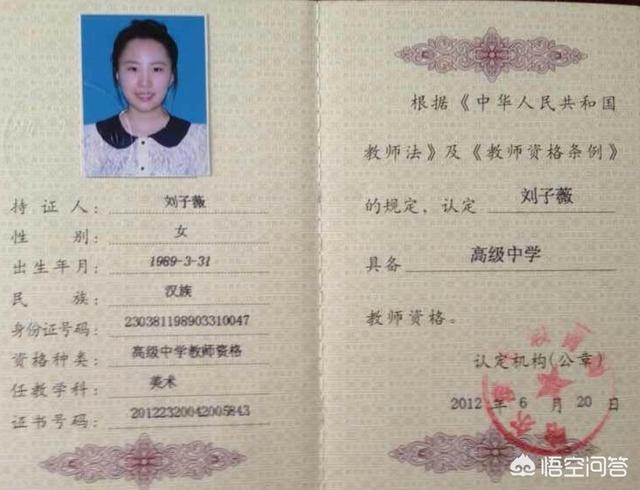 持证人：刘子薇
性别：女
出生年月：1989-3-31
民族：汉族
身份证号码：230381198903310047
资格种类：高级中学教师资格
任教学科：美术
证书号码：20122320042005843
根据《中华人民共和国
教师法》及《教师资格条例》
的规定，认定 刘子薇
具备 高级中学
教师资格。
认定机构(公章)
2012年6月20日
悟空问答